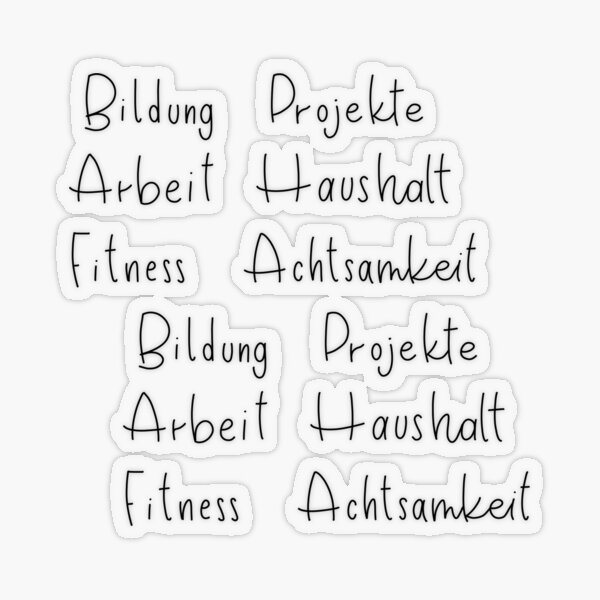 Bildung Projekte
Arbeit Haushalt
Fitness Achtsamkeit
Bildung Projekte
Arbeit Haushalt
Fitness Achtsamkeit